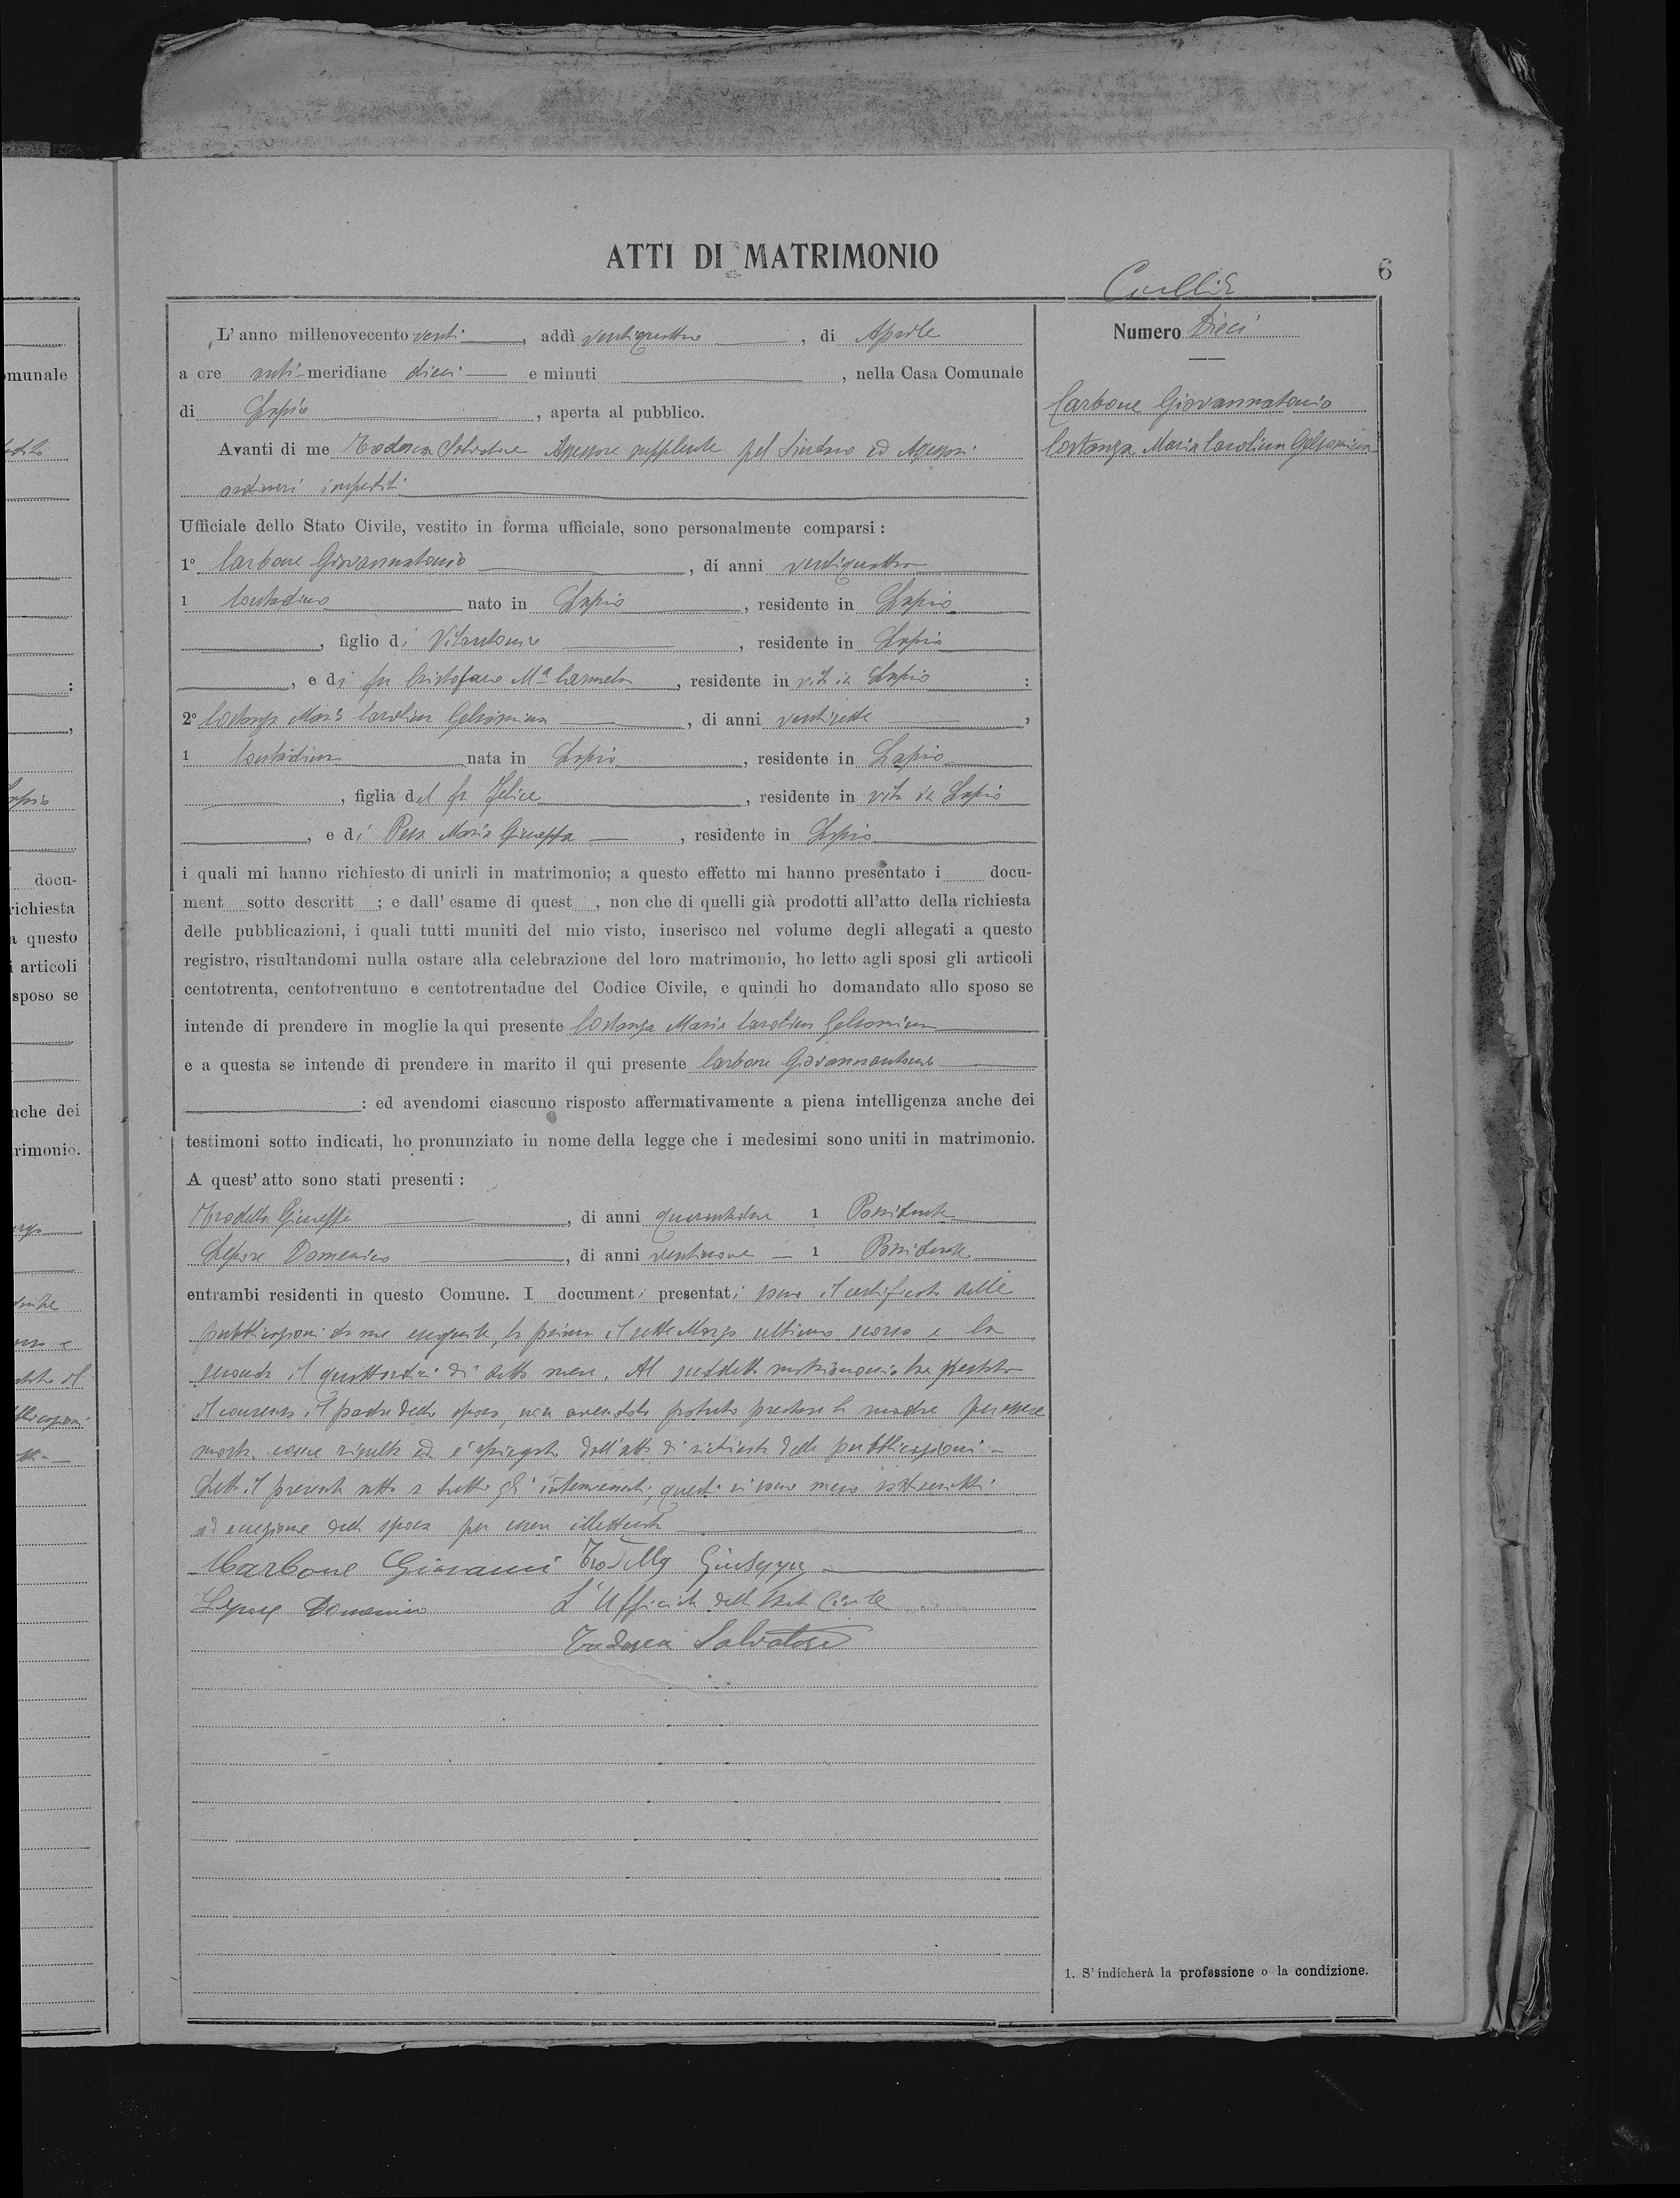 ATTI DI MATRIMONIO
6
Numero Dieci
Carbone Giovannantonio
Costanza Maria Carolina Gelsomina
L'anno millenovecento venti, addì ventiquattro, di Aprile
a ore anti-meridiane dieci e minuti, nella Casa Comunale
di Lapio, aperta al pubblico.
Avanti di me Tedesca Salvatore Assessore supplente pel Sindaco ed Assessori
ordinari impediti
Ufficiale dello Stato Civile, vestito in forma ufficiale, sono personalmente comparsi:
1º Carbone Giovannantonio, di anni ventiquattro
1 Contadino nato in Lapio, residente in Lapio
, figlio di Vitantonio, residente in Lapio
, e di fu Cristofano Mª Carmela, residente in vita in Lapio:
2º Costanza Maria Carolina Gelsomina, di anni ventisette,
1 Contadina nata in Lapio, residente in Lapio
, figlia del fu Felice, residente in vita in Lapio
, e di Maria Giuseppa, residente in Lapio
i quali mi hanno richiesto di unirli in matrimonio; a questo effetto mi hanno presentato i docu-
ment sotto descritt; e dall'esame di quest, non che di quelli già prodotti all'atto della richiesta
delle pubblicazioni, i quali tutti muniti del mio visto, inserisco nel volume degli allegati a questo
registro, risultandomi nulla ostare alla celebrazione del loro matrimonio, ho letto agli sposi gli articoli
centotrenta, centotrentuno e centotrentadue del Codice Civile, e quindi ho domandato allo sposo se
intende di prendere in moglie la qui presente Costanza Maria Carolina Gelsomina
e a questa se intende di prendere in marito il qui presente Carbone Giovannantonio
: ed avendomi ciascuno risposto affermativamente a piena intelligenza anche dei
testimoni sotto indicati, ho pronunziato in nome della legge che i medesimi sono uniti in matrimonio.
A quest'atto sono stati presenti:
Trodella Giuseppe, di anni quarantadue 1 Possidente
Lepore Domenico, di anni ventinove 1 Possidente
entrambi residenti in questo Comune. I documenti presentati sono il certificato delle
pubblicazioni da me eseguite, la prima il sette Marzo ultimo scorso e la
seconda il quattordici di detto mese. Al suddetto matrimonio ha prestato
il consenso il padre dello sposo, non avendolo potuto prestare la madre per essere
morta, come risulta ed è spiegato dall'atto di richiesta delle pubblicazioni.
Letto il presente atto a tutti gli intervenuti, questi si sono meco sottoscritti
ad eccezione della sposa per essere illetterata
Carbone Giovanni Trodella Giuseppe
Lepore Domenico L'Ufficiale dello Stato Civile
Tedesca Salvatore
1. S'indicherà la professione o la condizione.